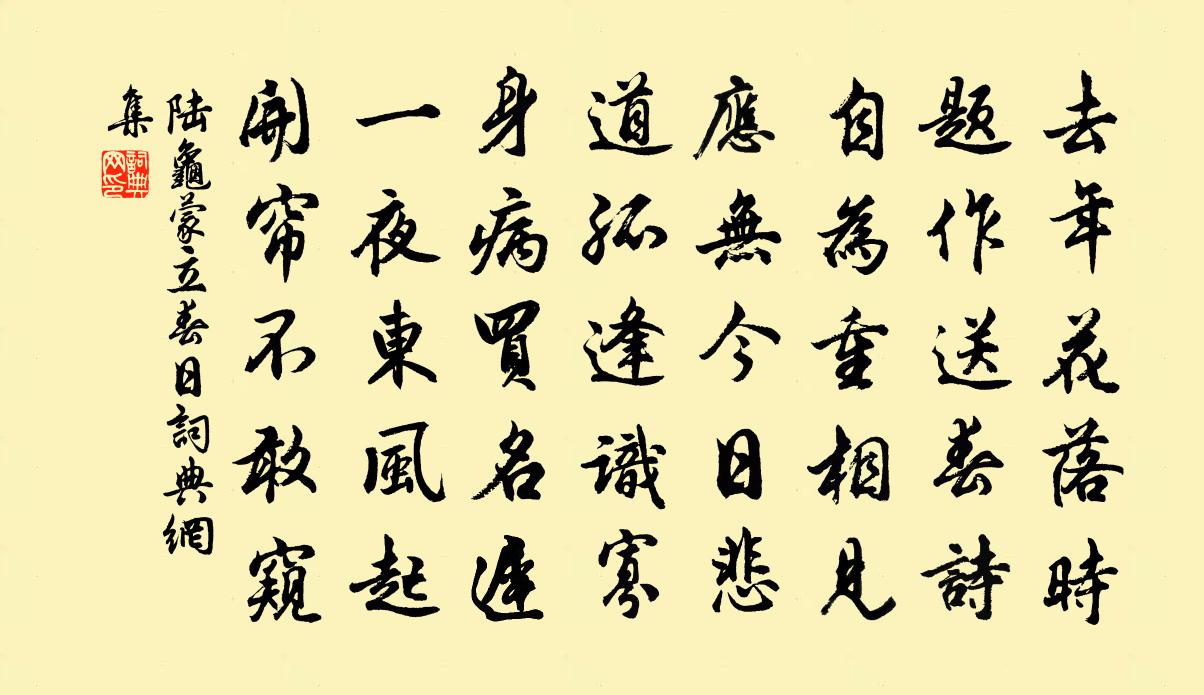 去年花落時
題作送春詩
自為重相見
應無今日悲
道孤逢識寡
身病買名遲
一夜東風起
開帘不敢窺
陸龜蒙立春日詞典網
集
詞典
网印